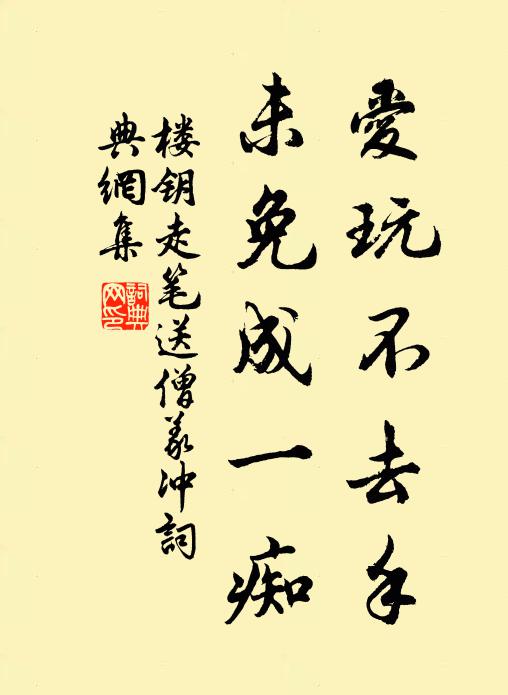 愛玩不去手
未免成一痴
楼钥走笔送僧义冲詞
典網集
詞典网印